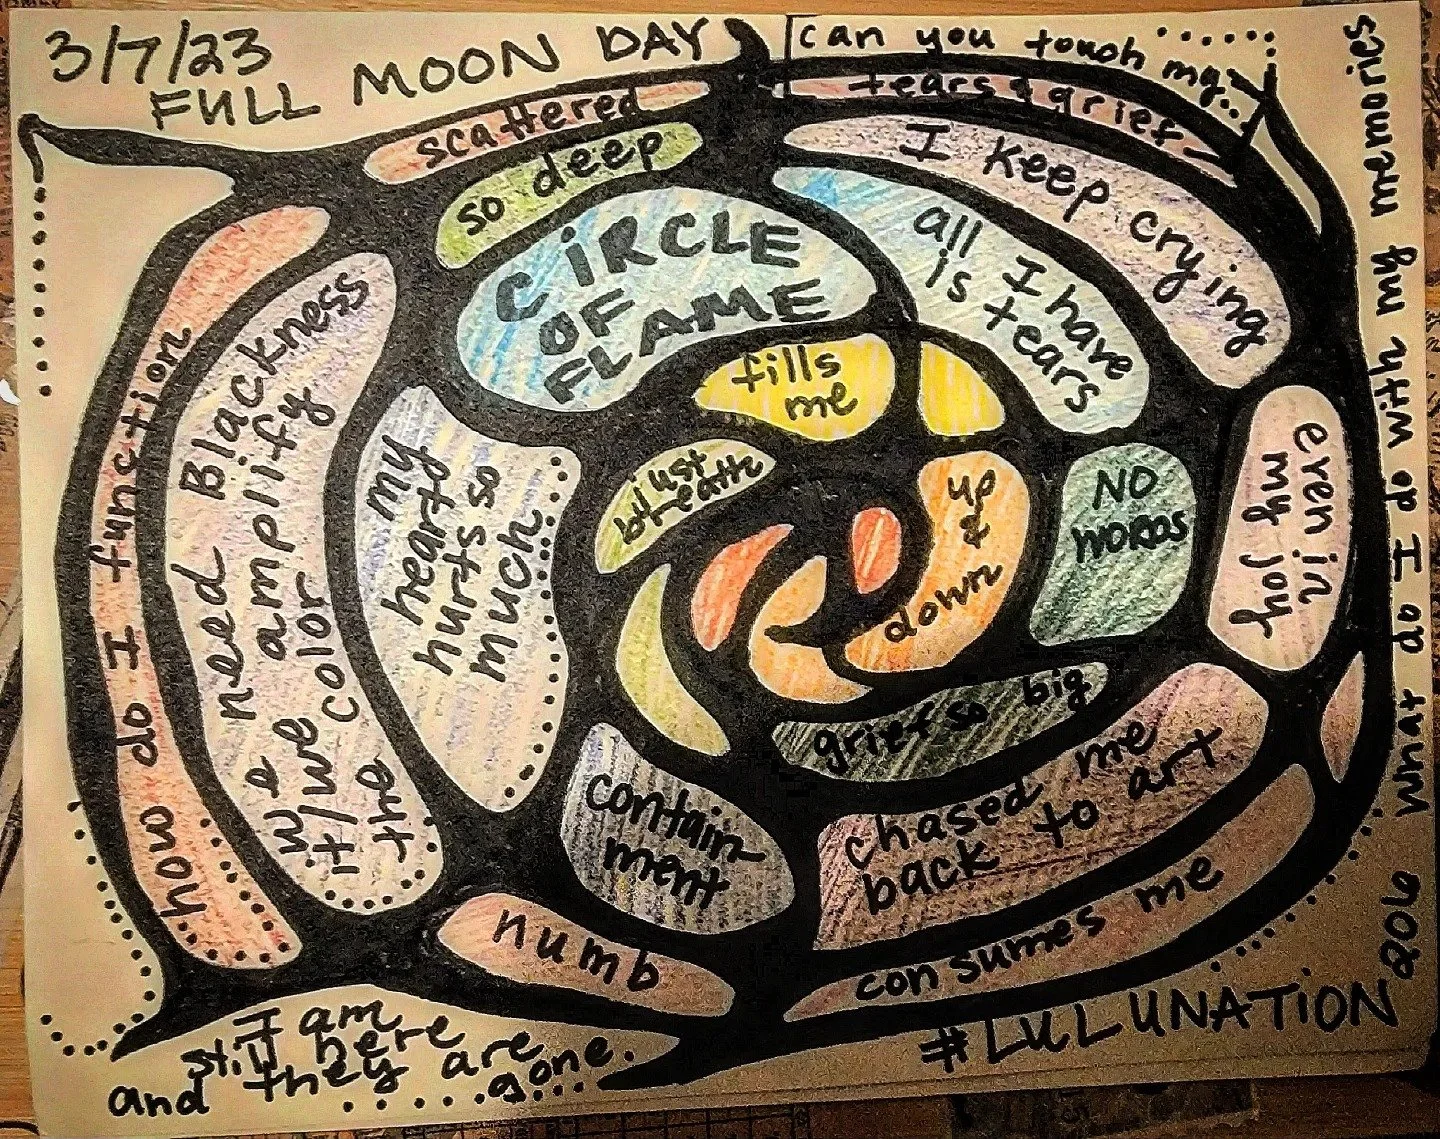 3/7/23
FULL MOON DAY
can you touch my...
tears & grief
scattered
so deep
I keep crying
CiRCLE
OF
FLAME
all I have
is tears
fills
me
just
breath
up
&
down
NO
WORDS
even in
my joy
my
heart
hurts so
much
how do I function
we need Blackness
amplify
it/we color
the
grief so big
chased me
back to art
contain-
ment
numb
consumes me
I am
still here
and they are
gone.
what do I do with my memories
#LULUNATiON
206